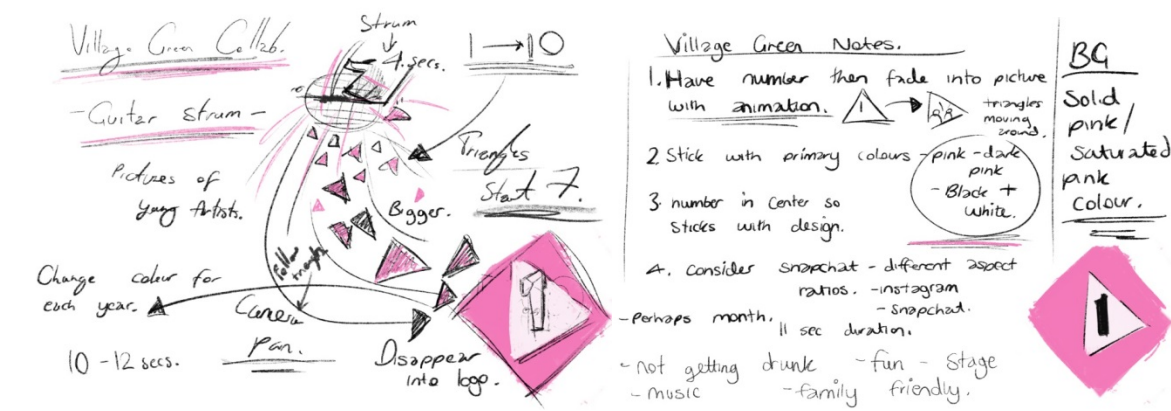 Village Green Collab.
Strum
4. secs.
1 → 10
- Guitar strum -
Pictures of
young Artists.
Triangles
Start 7.
Bigger.
Follow
through
Change colour for
each year.
Camera
Pan.
10 - 12 secs.
Disappear
into logo.
1
Village Green Notes.
1. Have number then fade into picture
with animation.
1
triangles
moving
around.
2 Stick with primary colours - pink - dark
pink
- Black +
white.
3. number in center so
Sticks with design.
4. Consider snapchat - different aspect
ratios. - instagram
- Snapchat.
- Perhaps month.
11 sec duration.
- not getting drunk - fun - Stage
- music - family friendly.
BG
Solid
pink /
Saturated
pink
Colour.
1